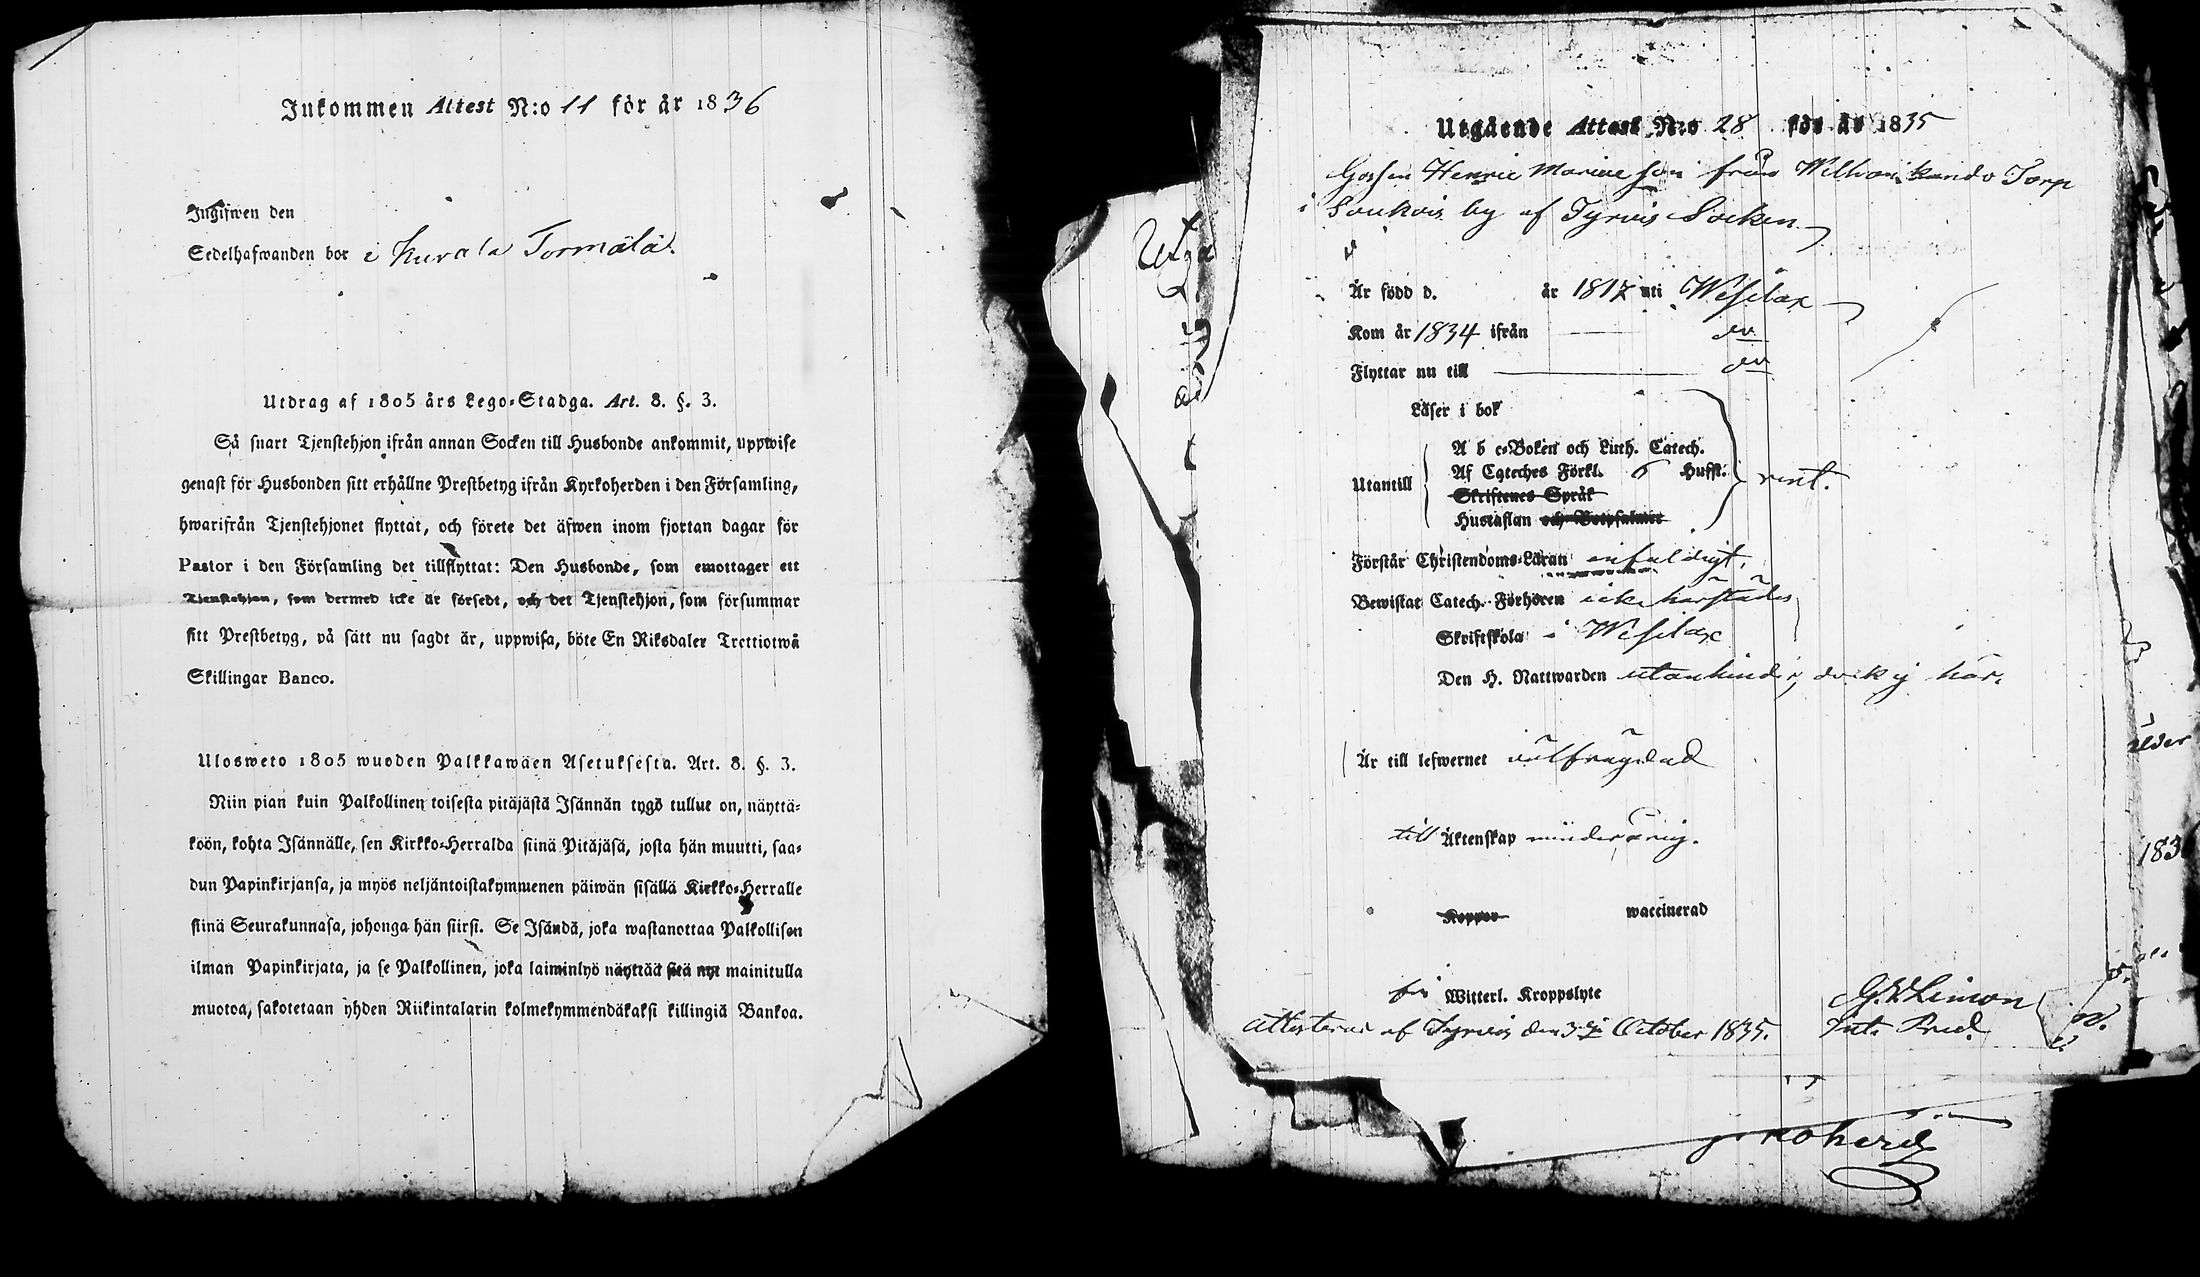 Inkommen Attest N:o 11 för år 1836
Ingifwen den
Sedelhafwanden bor i Kurala Tormälä.
Utdrag af 1805 års Lego-Stadga. Art. 8. §. 3.
Så snart Tjenstehjon ifrån annan Socken till Husbonde ankommit, uppwise
genast för Husbonden sitt erhållne Prestbetyg ifrån Kyrkoherden i den Församling,
hwarifrån Tjenstehjonet flyttat, och förete det äfwen inom fjortan dagar för
Pastor i den Församling det tillflyttat: Den Husbonde, som emottager ett
Tjenstehjon, som dermed icke är försedt, och det Tjenstehjon, som försummar
sitt Prestbetyg, på sätt nu sagdt är, uppwisa, böte En Riksdaler Trettiotwå
Skillingar Banco.
Ulosweto 1805 wuoden Palkkawäen Asetuksesta. Art. 8. §. 3.
Niin pian kuin Palkollinen toisesta pitäjästä Isännän tygö tullut on, näyttä-
köön, kohta Isännälle, sen Kirkko-Herralda siinä Pitäjäsä, josta hän muutti, saa-
dun Papinkirjansa, ja myös neljäntoistakymmenen päiwän sisällä Kirkko-Herralle
siinä Seurakunnasa, johonga hän siirsi. Se Isändä, joka wastanottaa Palkollisen
ilman Papinkirjata, ja se Palkollinen, joka laiminlyö näyttää sitä nyt mainitulla
muotoa, sakotetaan yhden Riikintalarin kolmekymmendäkaksi killingiä Bankoa.
Utgående Attest N:o 28 för år 1835
Gossen Henric Mariæ son från Torp
i Soukois by af Tyrvis Socken
Är född d. år 1817 uti Wesilax
Kom år 1834 ifrån do
Flyttar nu till do
Läser i bok
A b c-Boken och Luth. Catech.
Utantill Af Cateches Förkl. 6 Hufst. rent.
Skriftenes Språk
Hustaflan och Botpsalmer
Förstår Christendoms-Läran enfaldigt,
Bewistat Catech. Förhören icke härstädes
Skriftskola i Wesilax
Den H. Nattwarden utan hinder, dock ej här.
Är till lefwernet wälfrägdad
till Äktenskap minderårig.
Koppor waccinerad
fri Witterl. Kroppslyte
Attesterar af Tyrvis den October 1835.
1836